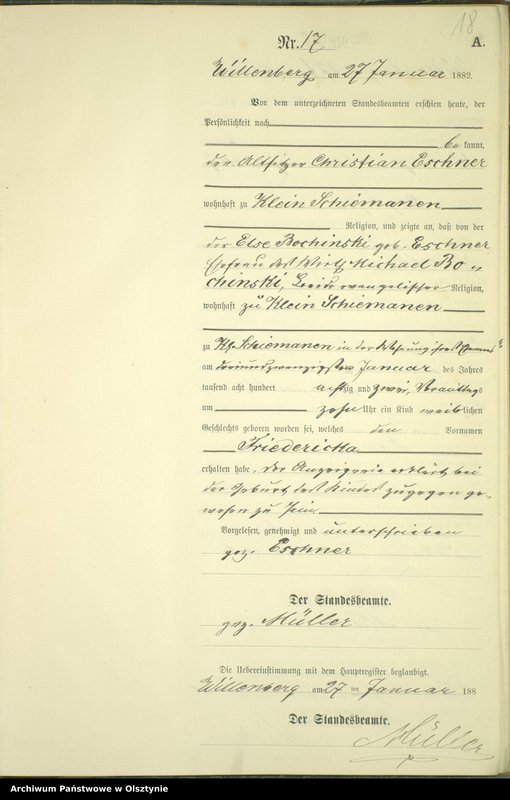 18
Nr. 17 A.
Willenberg am 27 Januar 1882.
Vor dem unterzeichneten Standesbeamten erschien heute, der
Persönlichkeit nach
be kannt,
der Altsitzer Christian Eschner
wohnhaft zu Klein Schiemanen
Religion, und zeigte an, daß von der
der Else Bochinski geb. Eschner
Ehefrau des Wirths Michael Bo=
chinski, beide evangelischer Religion,
wohnhaft zu Klein Schiemanen
zu Kl. Schiemanen in der Wohnung ihres Ehemannes
am dreiundzwanzigsten Januar des Jahres
tausend acht hundert achtzig und zwei, Vormittags
um zehn Uhr ein Kind weiblichen
Geschlechts geboren worden sei, welches den Vornamen
Friedericka
erhalten habe, der Anzeigende erklärt bei
der Geburt des Kindes zugegen ge=
wesen zu sein
Vorgelesen, genehmigt und unterschrieben
gez. Eschner
Der Standesbeamte.
gez. Müller
Die Uebereinstimmung mit dem Hauptregister beglaubigt.
Willenberg am 27 ten Januar 188
Der Standesbeamte.
Müller
Archiwum Państwowe w Olsztynie